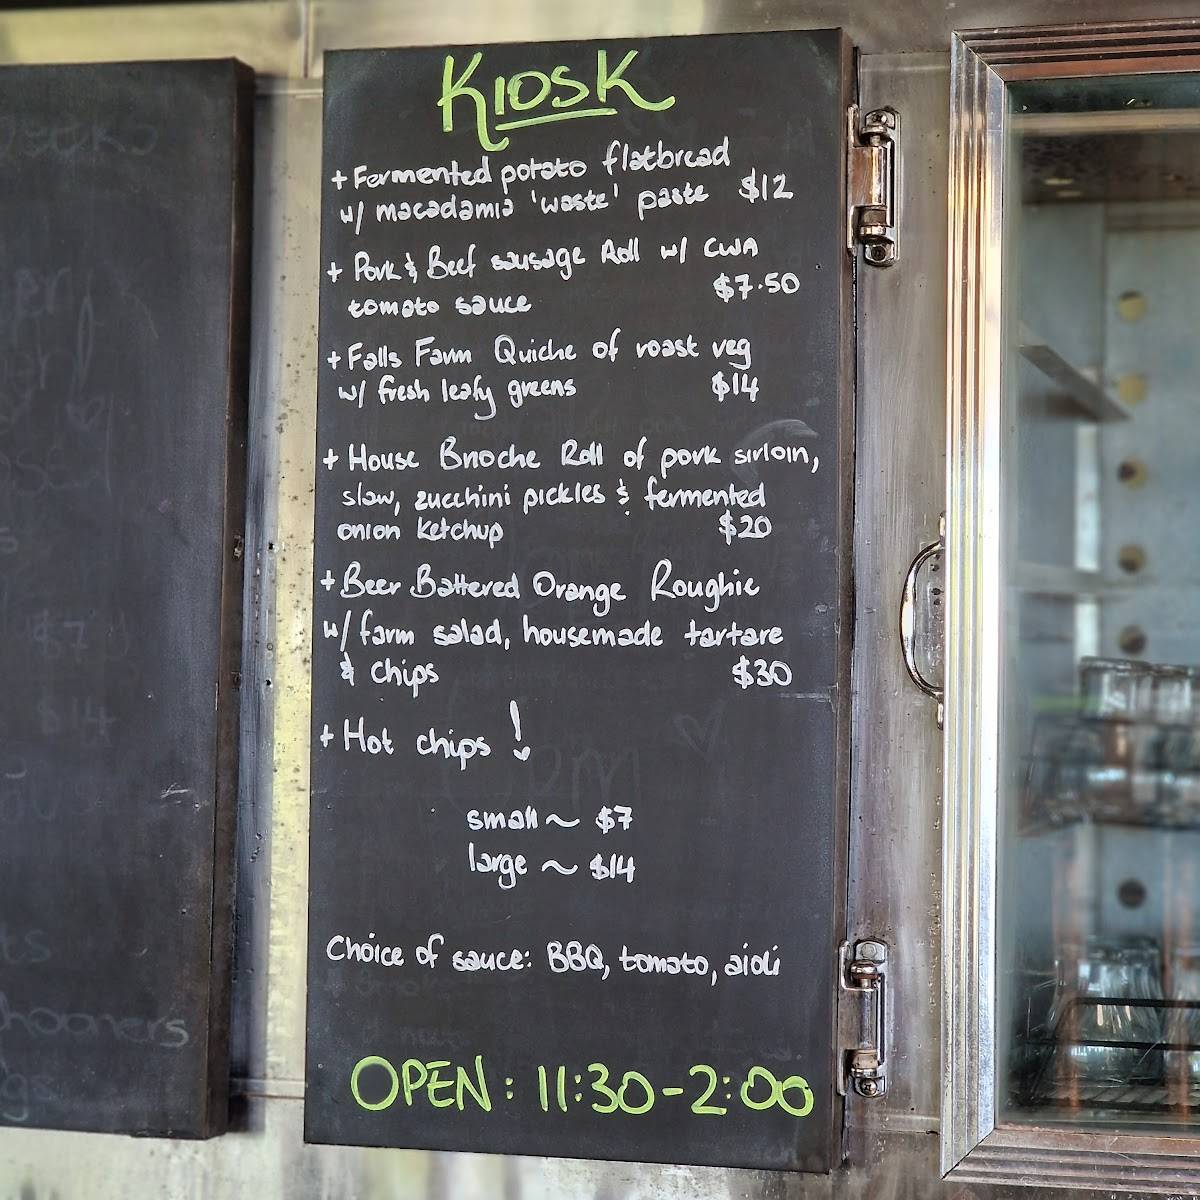 KIOSK
+ Fermented potato flatbread
w/ macadamia 'waste' paste $12
+ Pork & Beef sausage Roll w/ CWA
tomato sauce $7.50
+ Falls Farm Quiche of roast veg
w/ fresh leafy greens $14
+ House Brioche Roll of pork sirloin,
slaw, zucchini pickles & fermented
onion ketchup $20
+ Beer Battered Orange Roughie
w/ farm salad, housemade tartare
& chips $30
+ Hot chips !
small ~ $7
large ~ $14
Choice of sauce: BBQ, tomato, aioli
OPEN: 11:30-2:00
$14